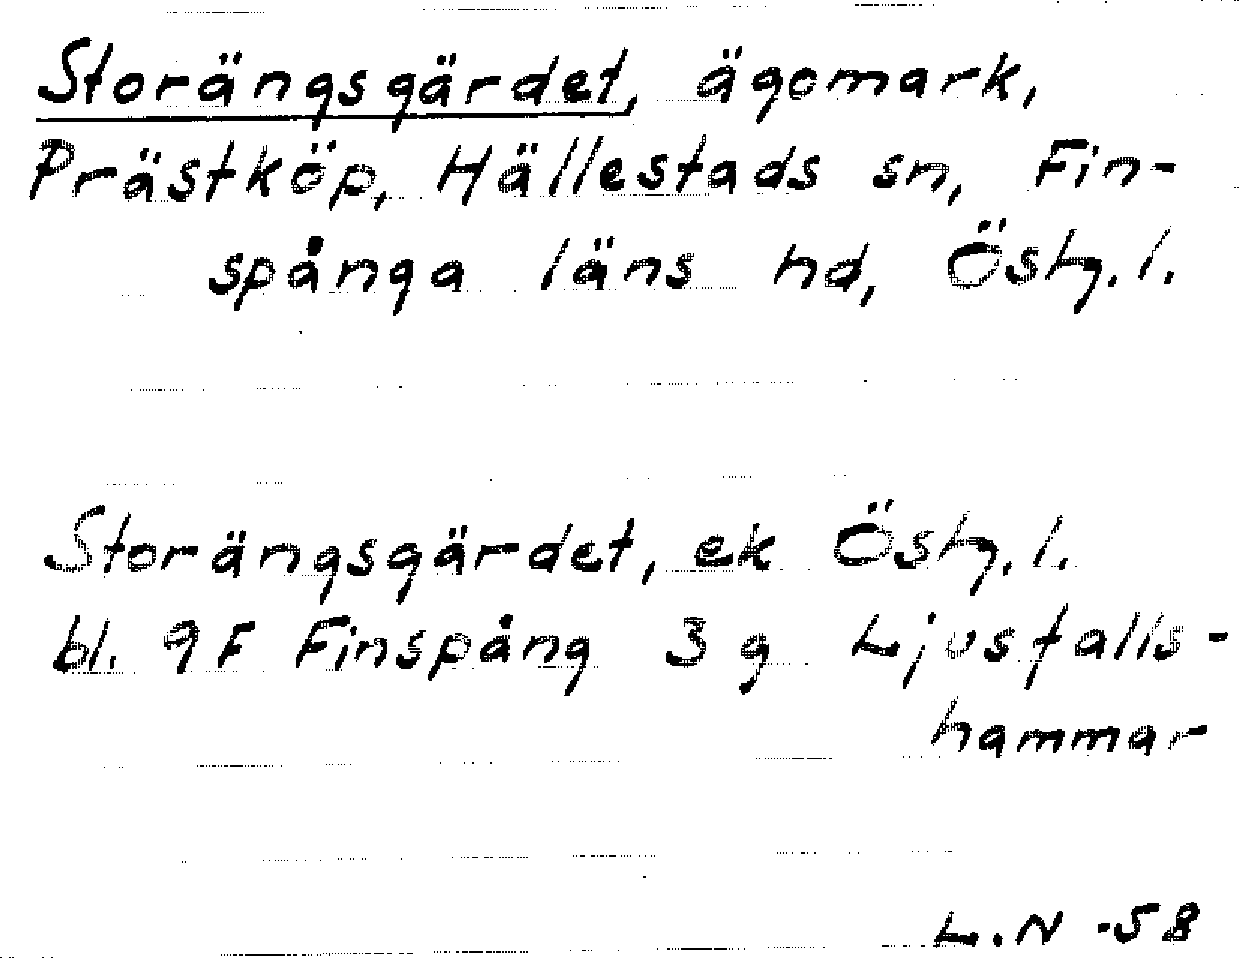 Storängsgärdet, ägomark,
Prästköp, Hällestads sn, Fin-
spånga läns hd, Östg. l.
Storängsgärdet, ek Östg. l.
bl. 9 F Finspång 3 g Ljusfalls-
hammar
L.N -58